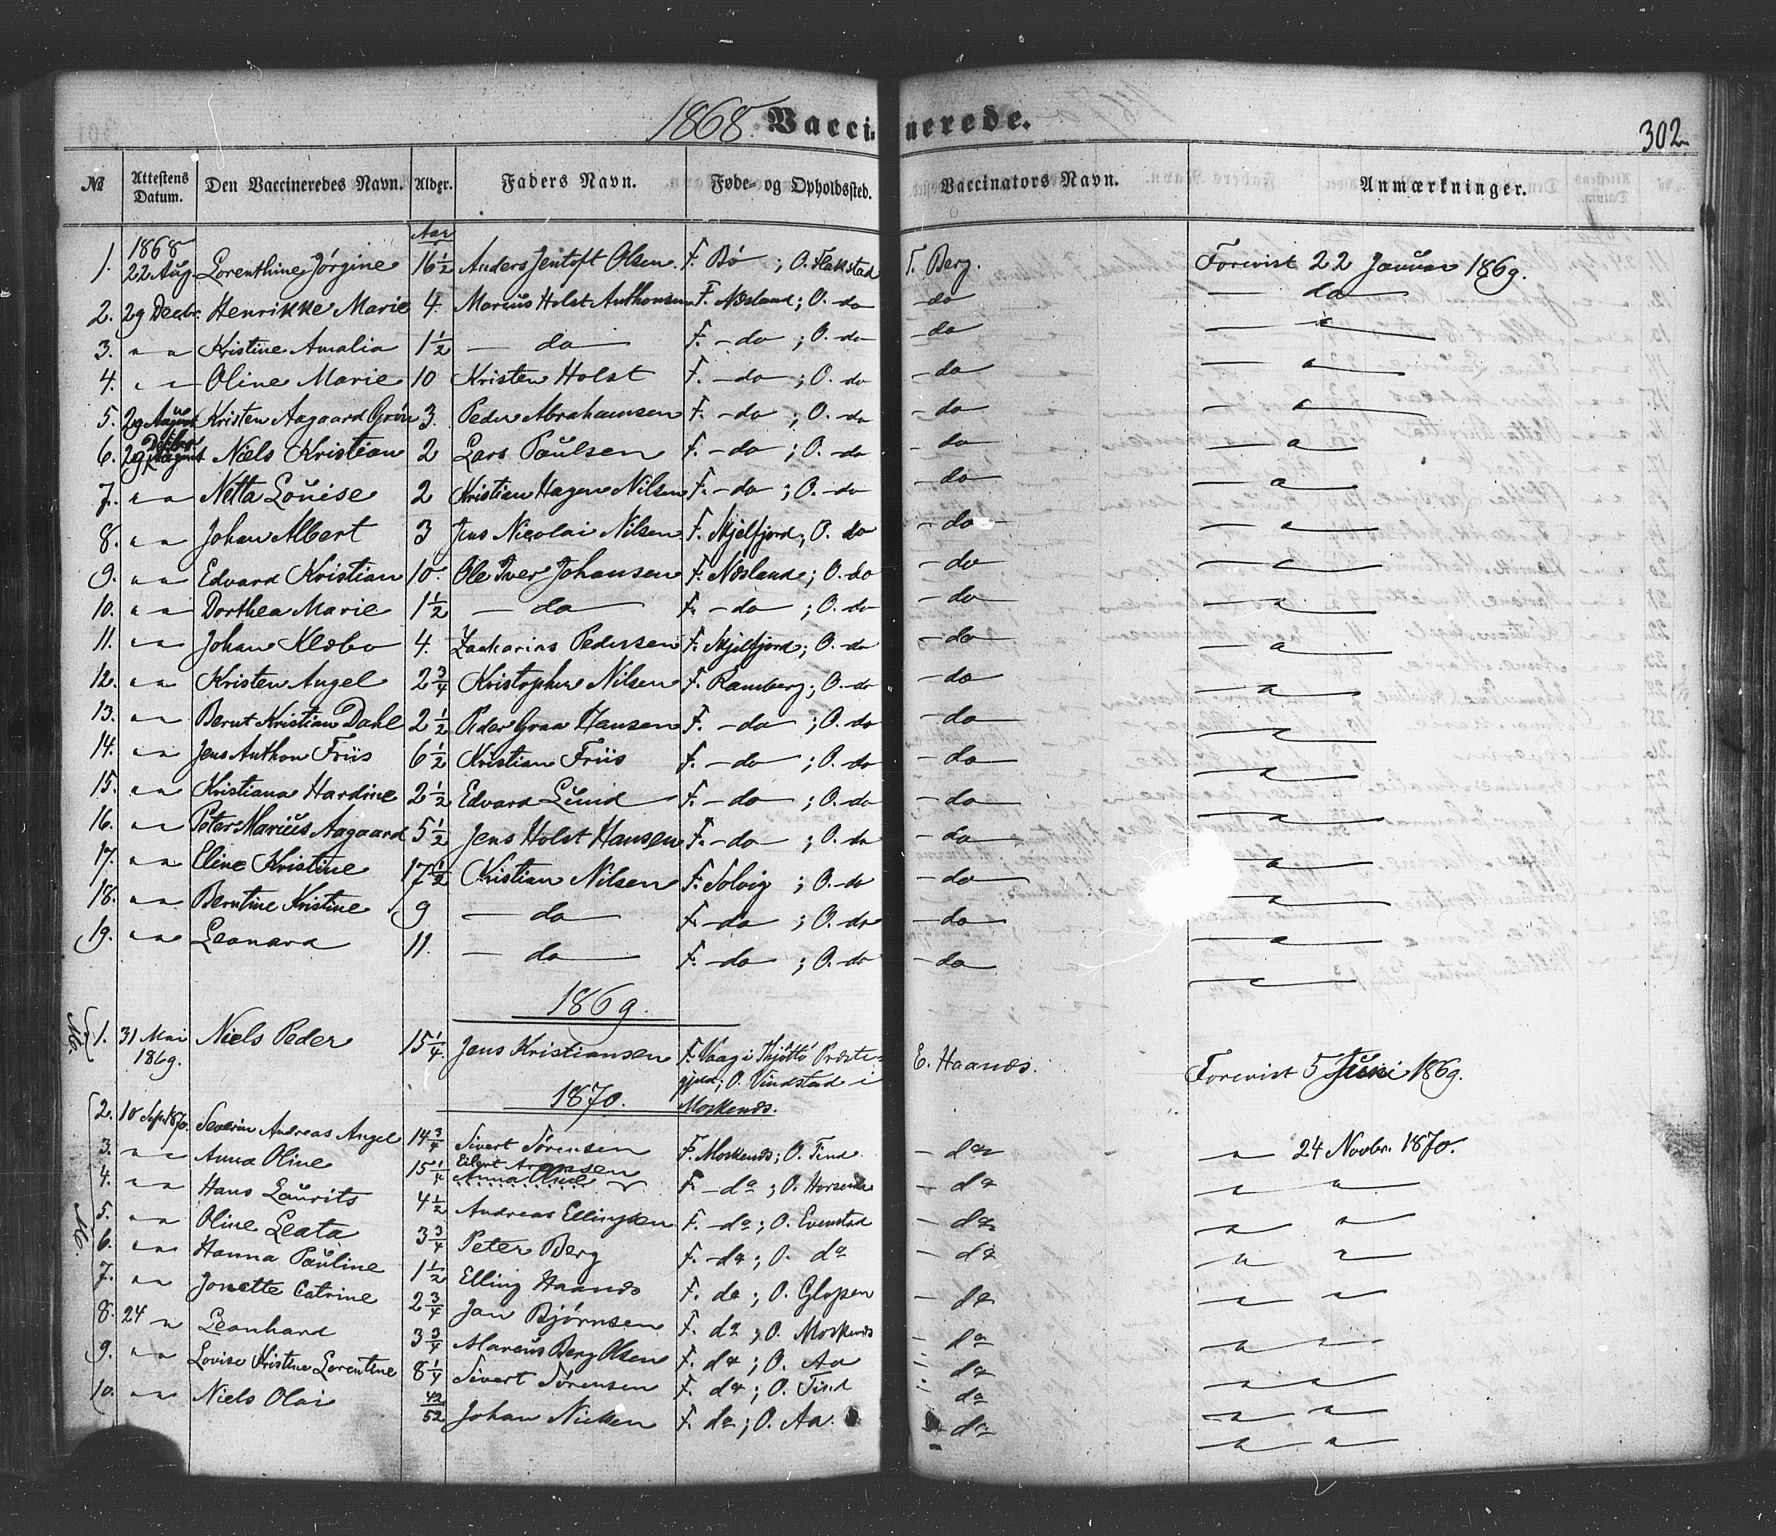 1868 Vaccinerede. 302
№ Attestens Datum. Den Vaccineredes Navn. Alder. Faders Navn. Føde- og Opholdssted. Vaccinators Navn. Anmærkninger.
Aar
1. 1868 22 Aug. Lorenthine Jörgine 16½ Anders Jentoft Olsen F. Bö ; O. Flakstad T. Berg. Forevist 22 Januar 1869.
2. 29 Decbr. Henrikke Marie 4. Marcus Holst Anthonsen F. Næsland; O. do - do — do —
3. " " Kristine Amalia 1½ — do — F. - do ; O. do - do — " —
4. " " Oline Marie 10 Kristen Holst F. - do ; O. do - do — " —
5. 29 August Kristen Aagaard Grön 3. Peder Abrahamsen F. - do ; O. do - do — " —
6. 29 Decbr. Niels Kristian 2 Lars Paulsen F. - do ; O. do - do — " —
7. " " Netta Louise 2 Kristian Hagen Nilsen F. - do ; O. do - do — " —
8. " " Johan Albert 3 Jens Nicolai Nilsen F. Skjelfjord; O. do - do — " —
9. " " Edvard Kristian 10. Ole Iver Johansen F. Næsland; O. do - do — " —
10. " " Dorthea Marie 1½ — do — F. - do ; O. do - do — " —
11. " " Johan Klæbo 4. Zacharias Pedersen F. Skjelfjord; O. do - do — " —
12. " " Kristen Angel 2¾ Kristopher Nilsen F. Ramberg; O. do - do — " —
13. " " Bernt Kristian Dahl 2½ Peder Graa Hansen F. - do ; O. do - do — " —
14. " " Jens Anthon Friis 6½ Kristian Friis F. - do ; O. do - do — " —
15. " " Kristiana Hardine 2½ Edvard Lund F. - do ; O. do - do — " —
16. " " Peter Marius Aagaard 5½ Jens Holst Hansen F. - do ; O. do - do — " —
17. " " Eline Kristine 17½ Kristian Nilsen F. Solvig ; O. do - do — " —
18. " " Berntine Kristine 9 — do — F. - do ; O. do - do — " —
19. " " Leonard 11. — do — F. - do ; O. do - do — " —
1869.
1. 31 Mai 1869. Niels Peder 15¼ Jens Kristiansen F. Vaag i Thjöttö Præste- E. Haanæs. Forevist 5 Juni 1869.
gjeld; O. Vindstad i
Moskenæs.
1870.
2. 10 Sept. 1870. Severin Andreas Angel 14¾ Sivert Sörensen F. Moskenæs; O. Tind. - do " 24 Novbr. 1870.
3. " " Anna Oline 15¼ Eilert Arntsen F. - do ; O. Horseidet - do " "
Anna Oline
4. " " Hans Laurits 4½ Andreas Ellingsen F. - do ; O. Evenstad - do " "
5. " " Oline Leata 3¾ Peter Berg F. - do ; O. do - do " "
6. " " Hanna Pauline 1½ Elling Haanæs F. do ; O. Glopen - do " "
7. " " Jonette Catrine 2¾ Jan Bjørnsen F. do ; O. Moskenæs - do " "
8. 24 " Leonhard 3¾ Marcus Berg Olsen F. do ; O. Aa - do " "
9. " " Lovise Kristine Lorentine 8¼ Sivert Sörensen F. do ; O. Tind - do " "
10. " " Niels Olai 42/52 Johan Nicken F. do ; O. Aa. - do " "